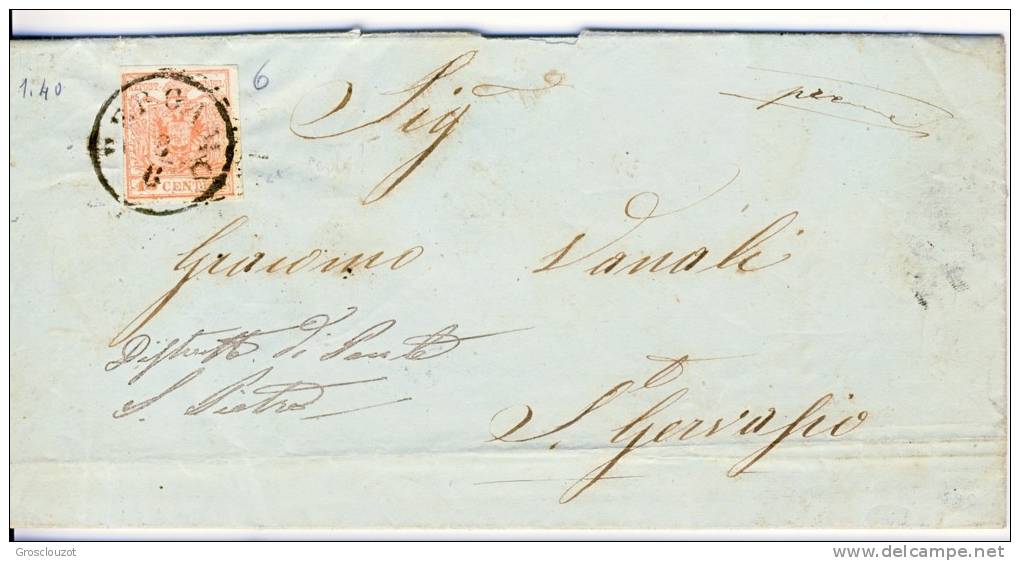 1.40
6
BERGAMO
CENTES
Sig
Giacomo Vanali
Distrett. di Ponte
S. Pietro
S. Gervasio
Grosclouzot
www.delcampe.net